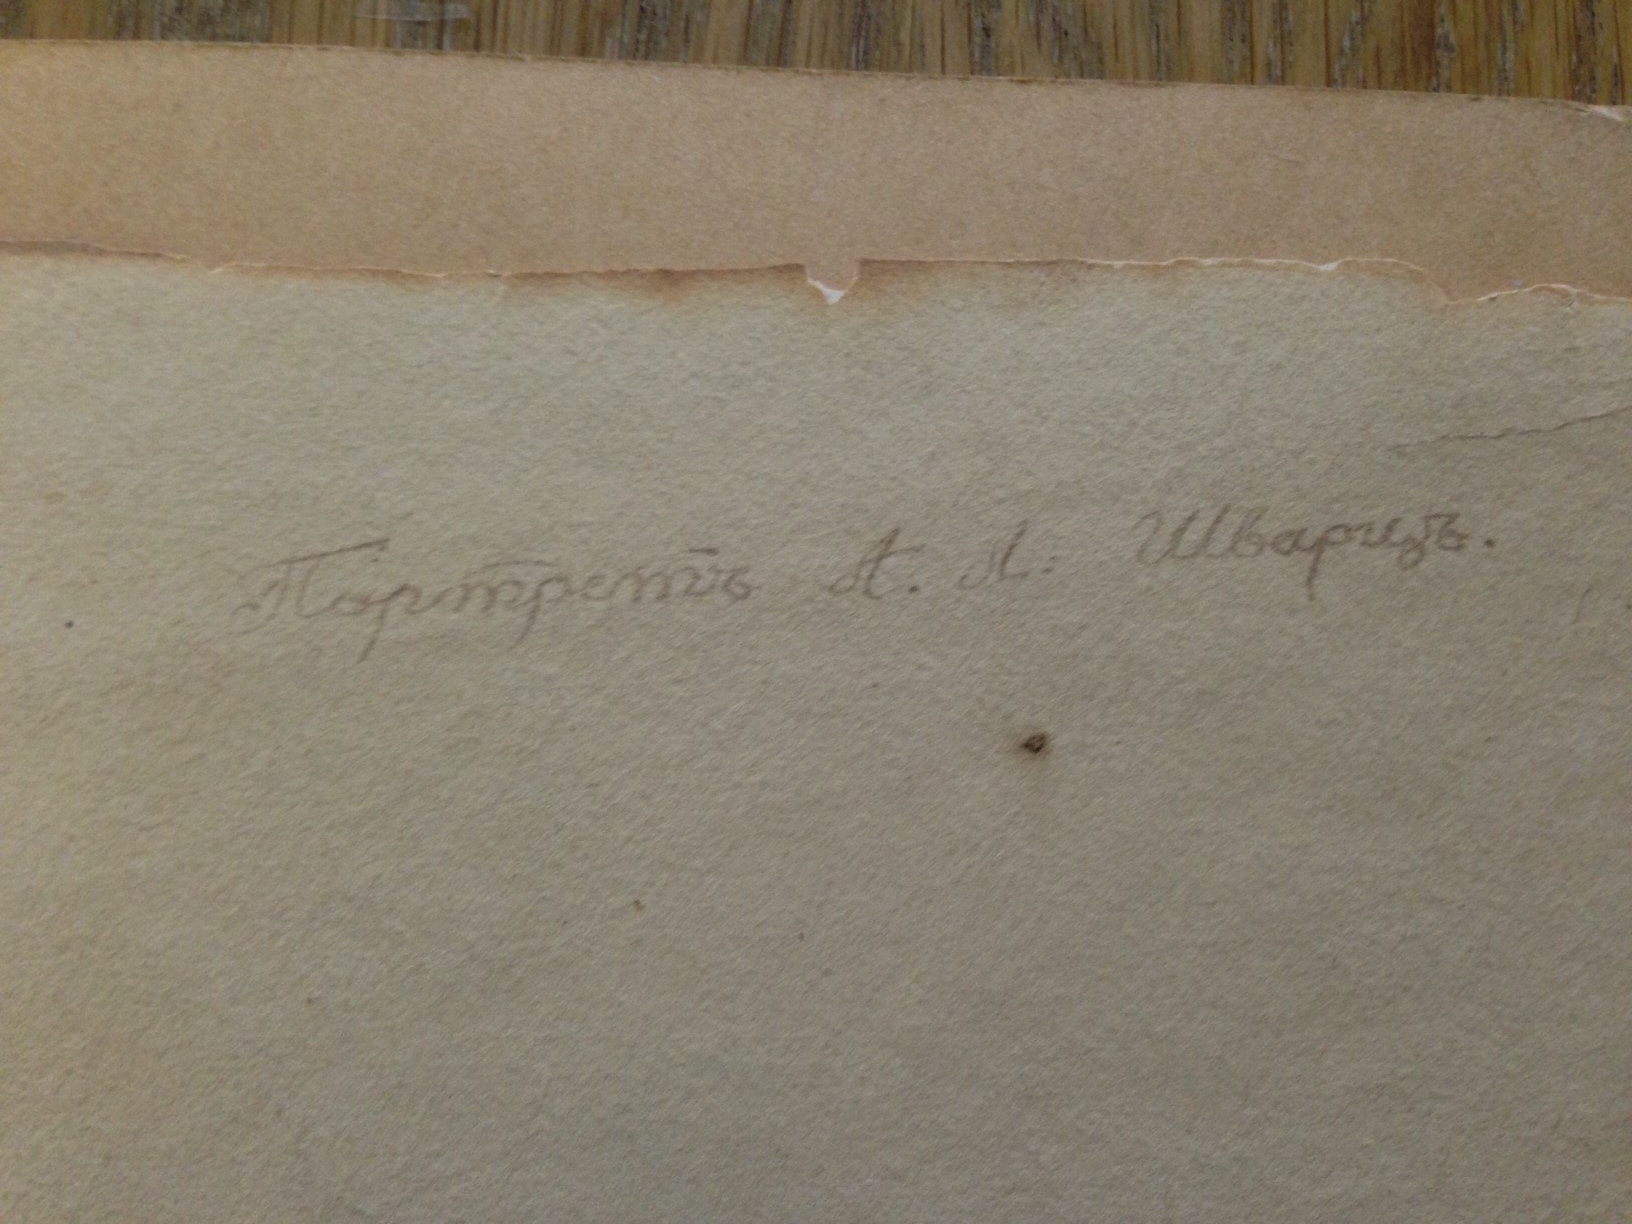 Портретъ А. А. Шварцъ.